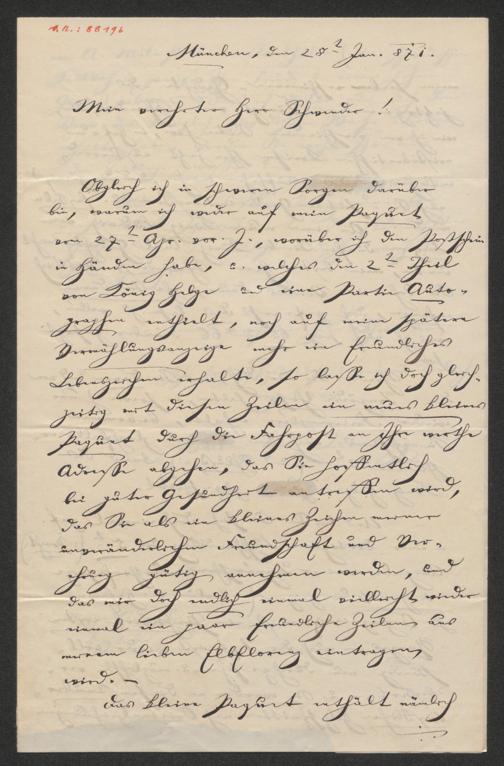 I.N.: 88196
München, den 28t Jan. 871.
Mein verehrter Herr Schwender!
Obgleich ich in schweren Sorgen darüber
bin, warum ich weder auf mein Paquet
von 27t Apr. vor. J., worüber ich den Postschein
in Händen habe, u. welches den 2t Theil
von König Helge und eine Partie Auto-
graphen enthielt, noch auf meine spätere
Vermählungsanzeige mehr ein freundliches
Lebenszeichen erhalte, so lasse ich doch gleich-
zeitig mit diesen Zeilen ein neues kleines
Paquet durch die Fahrpost an Ihre werthe
Adresse abgehen, das Sie hoffentlich
bei guter Gesundheit antreffen wird,
das Sie als ein kleines Zeichen meiner
unveränderlichen Freundschaft und Ver-
ehrung gütig annehmen werden, und
das mir doch endlich einmal vielleicht wieder
einmal ein paar freundliche Zeilen aus
meinem lieben Elbflorenz eintragen
wird. —
Das kleine Paquet enthält nämlich